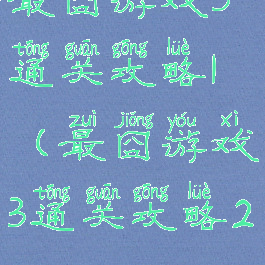 最囧游戏3
tōng guān gōng lüè
通关攻略1
zuì jiǒng yóu xì
(最囧游戏
tōng guān gōng lüè
3通关攻略2